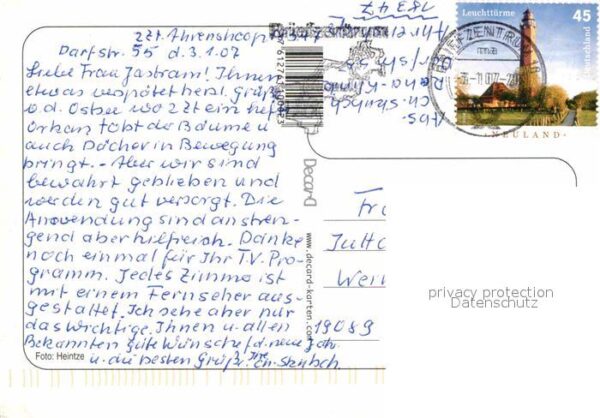 zzt. Ahrenshoop
Dorfstr. 55 d. 3.1.07
Liebe Frau Jastram! Ihnen
etwas verspätet herzl. Grüße
v.d. Ostsee wo zzt ein hef
Orkan tobt der Bäume u
auch Dächer in Bewegung
bringt. - Aber wir sind
bewahrt geblieben und
werden gut versorgt. Die
Anwendung sind anstren-
gend aber hilfreich. Danke
noch einmal für Ihr TV. Pro-
gramm. Jedes Zimmer ist
mit einem Fernseher aus-
gestattet. Ich sehe aber nur
das Wichtige. Ihnen u. allen
Bekannten gute Wünsche f.d. neue Jahr
u. die besten Grüße Ihre
Foto: Heintze
Decard
www.decard-karten.com
Abs.
18347
Leuchttürme 45
Deutschland
NEULAND
BRIEFZENTRUM 18
Fr
Jutta
Wer
19089
privacy protection
Datenschutz